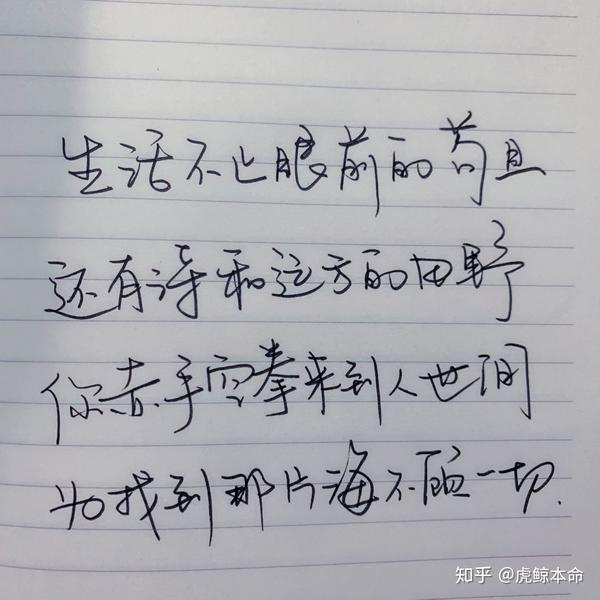 生活不止眼前的苟且
还有诗和远方的田野
你赤手空拳来到人世间
为找到那片海不顾一切.
知乎 @虎鲸本命